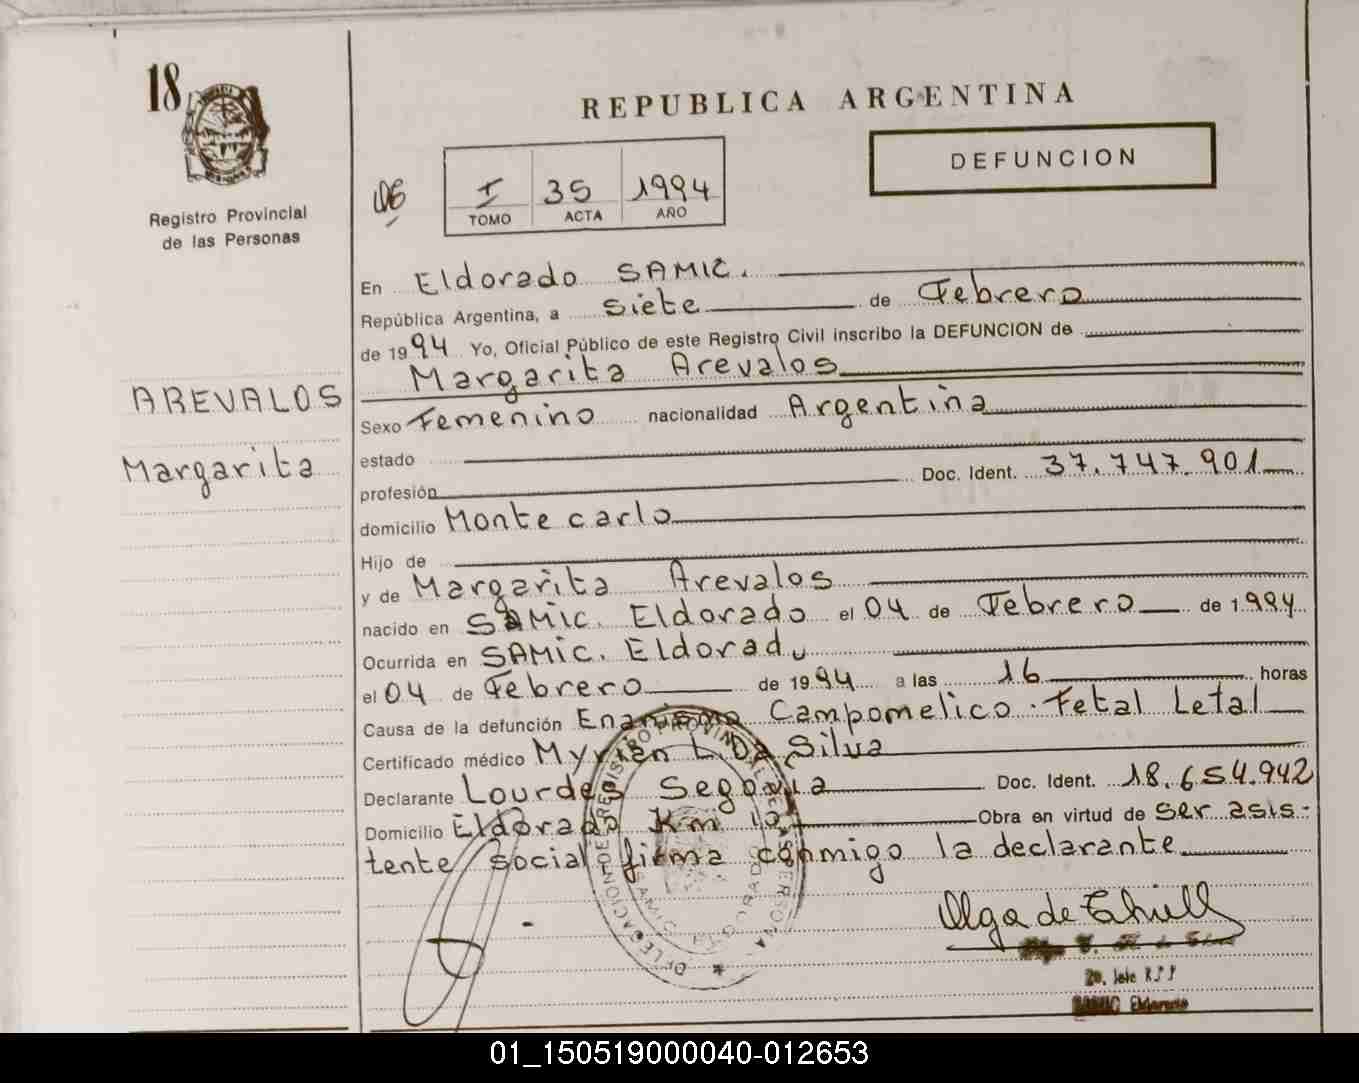 18
REPUBLICA ARGENTINA
DEFUNCION
Registro Provincial
de las Personas
I 35 1994
TOMO ACTA AÑO
AREVALOS
Margarita
En Eldorado SAMIC.
República Argentina, a siete de Febrero
de 1994 Yo, Oficial Público de este Registro Civil inscribo la DEFUNCION de
Margarita Arevalos
Sexo Femenino nacionalidad Argentina
estado
profesión Doc. Ident. 37.747.901
domicilio Monte carlo
Hijo de
y de Margarita Arevalos
nacido en SAMIC. Eldorado el 04 de Febrero de 1.994
Ocurrida en SAMIC. Eldorado
el 04 de Febrero de 1994 a las 16 horas
Causa de la defunción Enanismo Campomelico. Fetal Letal
Certificado médico Myrian L. Da Silva
Declarante Lourdes Segovia Doc. Ident. 18.654.942
Domicilio Eldorado Km 10, Obra en virtud de ser asis-
tente social firma conmigo la declarante
DELEGACION DE REGISTRO PROVINCIAL DE LAS PERSONAS
SAMIC ELDORADO
Olga de
2a. Jefe R.P.P
SAMIC Eldorado
01_150519000040-012653